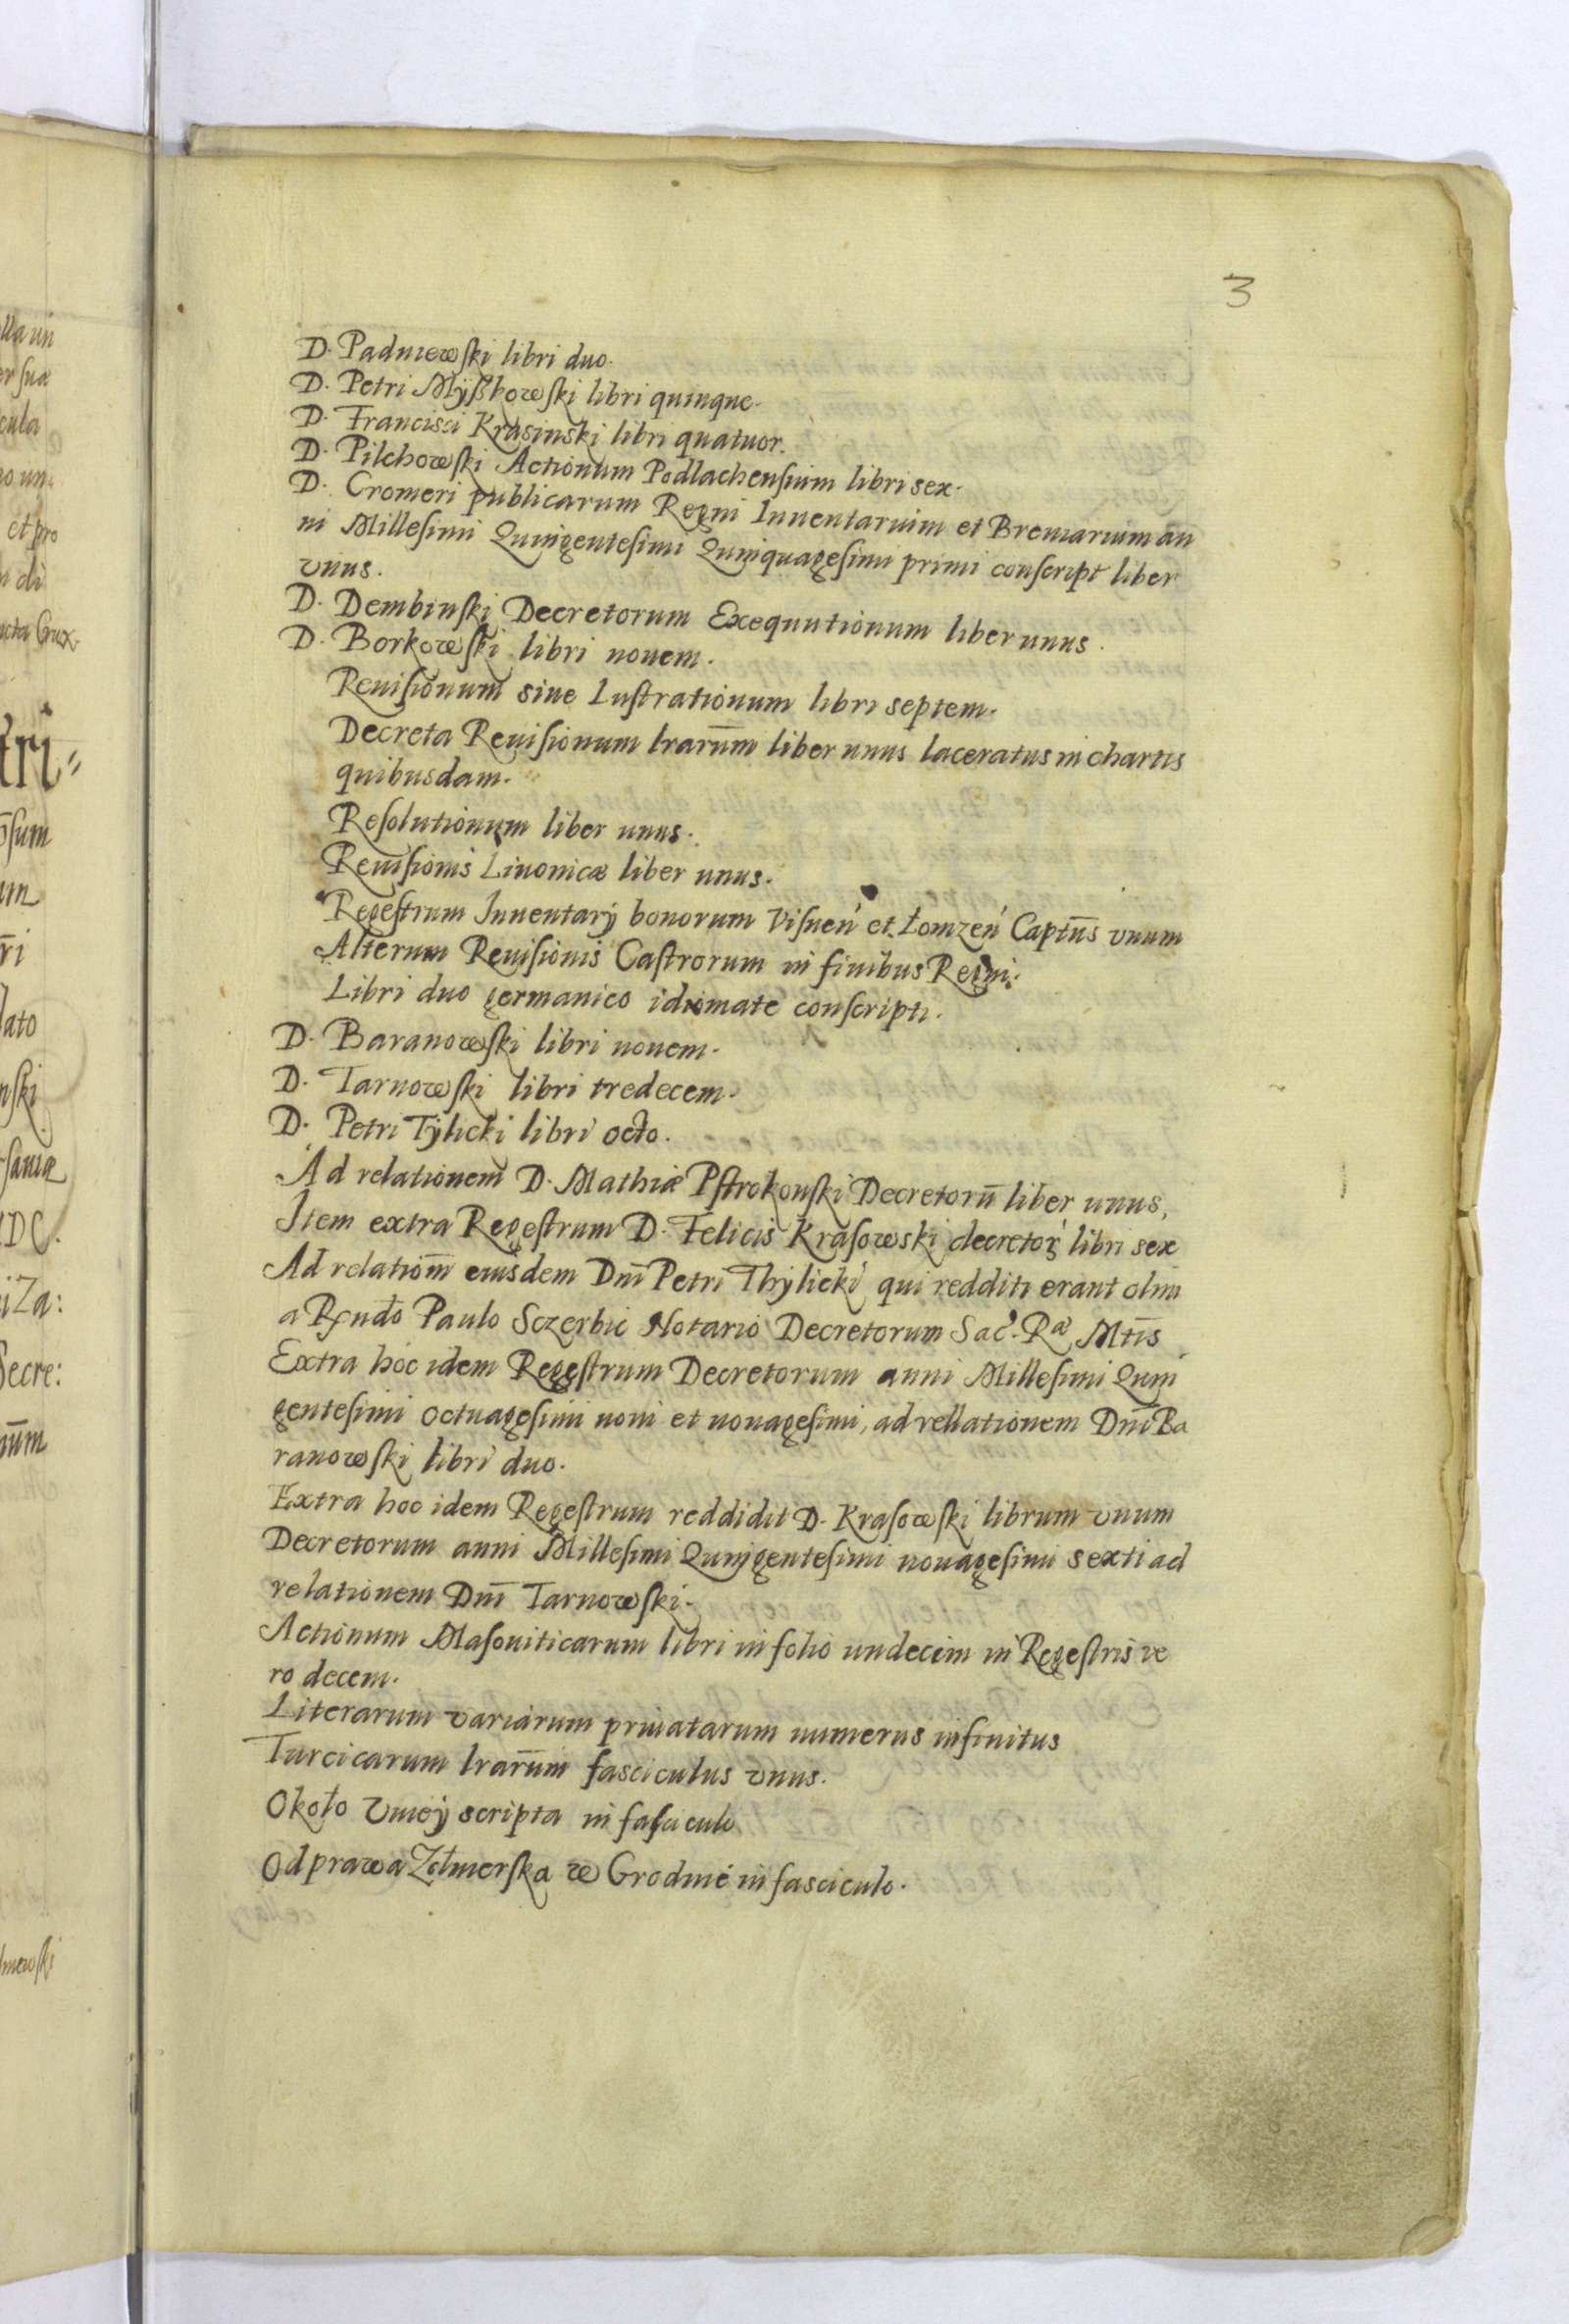 lla un
er suæ
cula
o un.
et pro
n di
ncta Crux.
tri=
ōsum
um
r̄i
lato
nski
saviæ
DC.
iZa:
Secre:
nūm
3
D. Padniewski libri duo.
D. Petri Myßkowski libri quinque.
D. Francisci Krasinski libri quatuor.
D. Pilchowski Actionum Podlachensium libri sex.
D. Cromeri publicarum Regni Inuentarium et Breuiarium an
ni Millesimi Quingentesimi Quinquagesimi primi conscript liber
vnus.
D. Dembinski Decretorum Exequutionum liber unus.
D. Borkowski libri nouem.
Reuisionum siue Lustrationum libri septem.
Decreta Reuisionum lrarūm liber unus laceratus in chartis
quibusdam.
Resolutionum liber unus.
Reuisionis Liuonicæ liber unus.
Regestrum Inuentarij bonorum Visnen et Łomzen Captūs vnum
Alterum Reuisionis Castrorum in finibus Regni.
Libri duo germanico idiomate conscripti.
D. Baranowski libri nouem.
D. Tarnowski libri tredecem.
D. Petri Tylicki libri octo.
Ad relationem D. Mathiæ Pstrokonski Decretorū liber unus,
Item extra Regestrum D. Felicis Krasowski decretoꝝ libri sex
Ad relatiom̄ eiusdem Dnī Petri Thylicki qui redditi erant olim
a Rndo Paulo Sczerbic Notario Decretorum Sac. Ræ Mtīs
Extra hoc idem Regestrum Decretorum anni Millesimi Quin
gentesimi octuagesimi noni et nonagesimi, ad rellationem Dnī Ba
ranowski libri duo.
Extra hoc idem Regestrum reddidit D. Krasowski librum vnum
Decretorum anni Millesimi Quingentesimi nonagesimi sexti ad
relationem Dnī Tarnowski.
Actionum Masouiticarum libri in folio undecim in Regestris ve
ro decem.
Literarum variarum priuatarum numerus infinitus
Turcicarum lrarūm fasciculus vnus.
Około Vniey scripta in fasciculo
Odprawa Zołnierska w Grodnie in fasciculo.